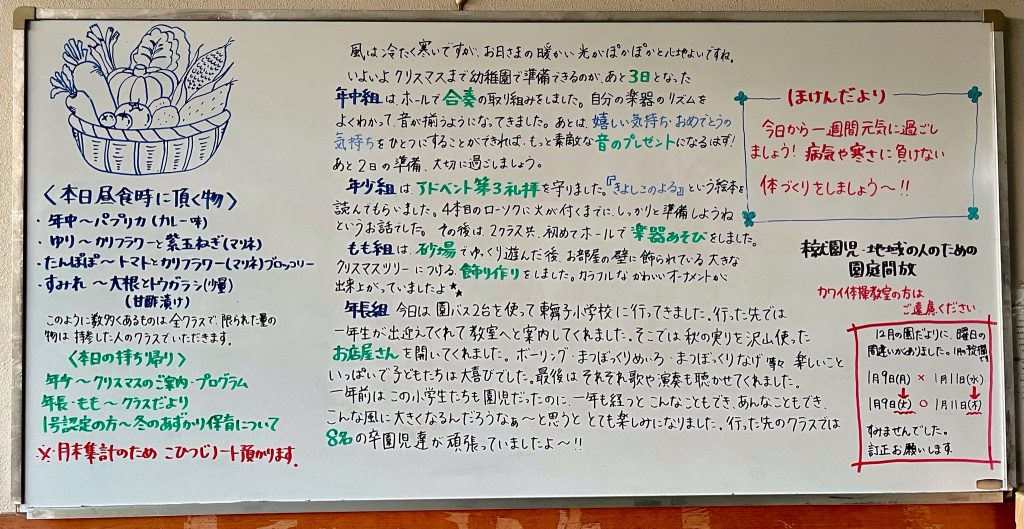 〈本日昼食時に頂く物〉
・年中～パプリカ(カレー味)
・ゆり～カリフラワーと紫玉ねぎ(マリネ)
・たんぽぽ～トマトとカリフラワー(マリネ)ブロッコリー
・すみれ～大根とトウガラシ(少量)
(甘酢漬け)
このように数多くあるものは全クラスで、限られた量の
物は持参した人のクラスでいただきます。
〈本日の持ち帰り〉
年少～クリスマスのご案内・プログラム
年長・もも～クラスだより
1号認定の方～冬のあずかり保育について
※月末集計のためこひつじノート頂かります。
風は冷たく寒いですが、お日さまの暖かい光がぽかぽかと心地よいですね。
いよいよクリスマスまで幼稚園で準備できるのが、あと3日となった
年中組はホールで合奏の取り組みをしました。自分の楽器のリズムを
よくわかって、音が揃うようになってきました。あとは、嬉しい気持ち・おめでとうの
気持ちをひとつにすることができれば、もっと素敵な音のプレゼントになるはず!
あと2日の準備、大切に過ごしましょう。
年少組はアドベント第3礼拝を守りました。『きよしこのよる』という絵本を
読んでもらいました。4本目のローソクに火が付くまでに、しっかりと準備しようね
というお話でした。その後は、2クラス共、初めてホールで楽器あそびをしました。
もも組は、砂場でゆっくり遊んだ後、お部屋の壁に飾られている大きな
クリスマスツリーにつける飾り作りをしました。カラフルなかわいいオーナメントが
出来上がっていましたよ★★
年長組 今日は園バス2台を使って東舞子小学校に行ってきました。行った先では
一年生が出迎えてくれて教室へと案内してくれました。そこでは秋の実りを沢山使った
お店屋さんを開いてくれました。ボーリング・まつぼっくりめいろ・まつぼっくりなげ等々楽しいこと
いっぱいで子どもたちは大喜びでした。最後はそれぞれ歌や演奏も聴かせてくれました。
一年前はこの小学生たちも園児だったのに、一年も経つとこんなこともでき、あんなこともでき、
こんな風に大きくなるんだろうなぁ～と思うととても楽しみになりました。行った先のクラスでは
8名の卒園児達が頑張っていましたよ～!!
ほけんだより
今日から一週間元気に過ごし
ましょう!病気や寒さに負けない
体づくりをしましょう～!!
未就園児・地域の人のための
園庭開放
カワイ体操教室の方は
ご遠慮ください
12月の園だよりに、曜日の
間違いがありました。1月の予定欄です
1月9日(月) × 1月11日(水)
1月9日(土) ○ 1月11日(木)
すみませんでした。
訂正お願いします